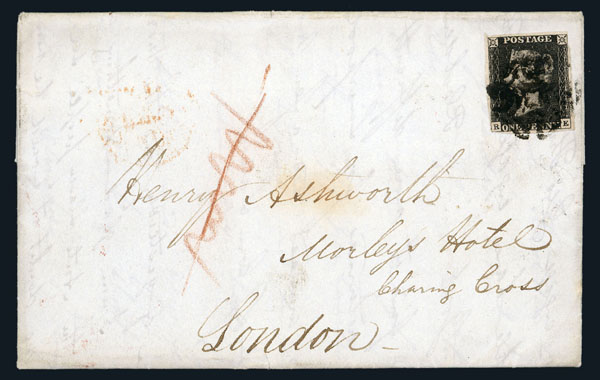 POSTAGE
R ONE PENNY E
Henry Ashworth
Morleys Hotel
Charing Cross
London